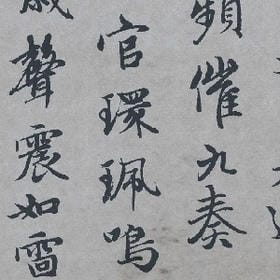 頻催九奏
官環珮鳴
歲聲震如雷